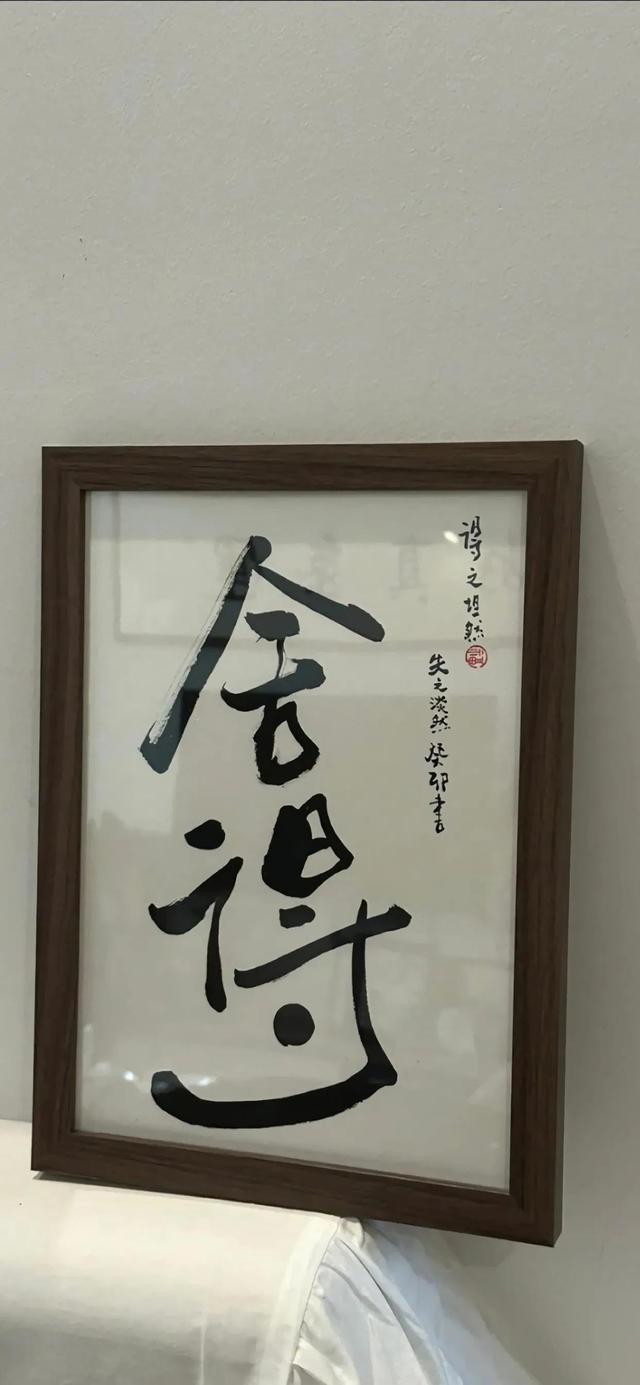 舍得
得之坦然
失之淡然 癸卯書